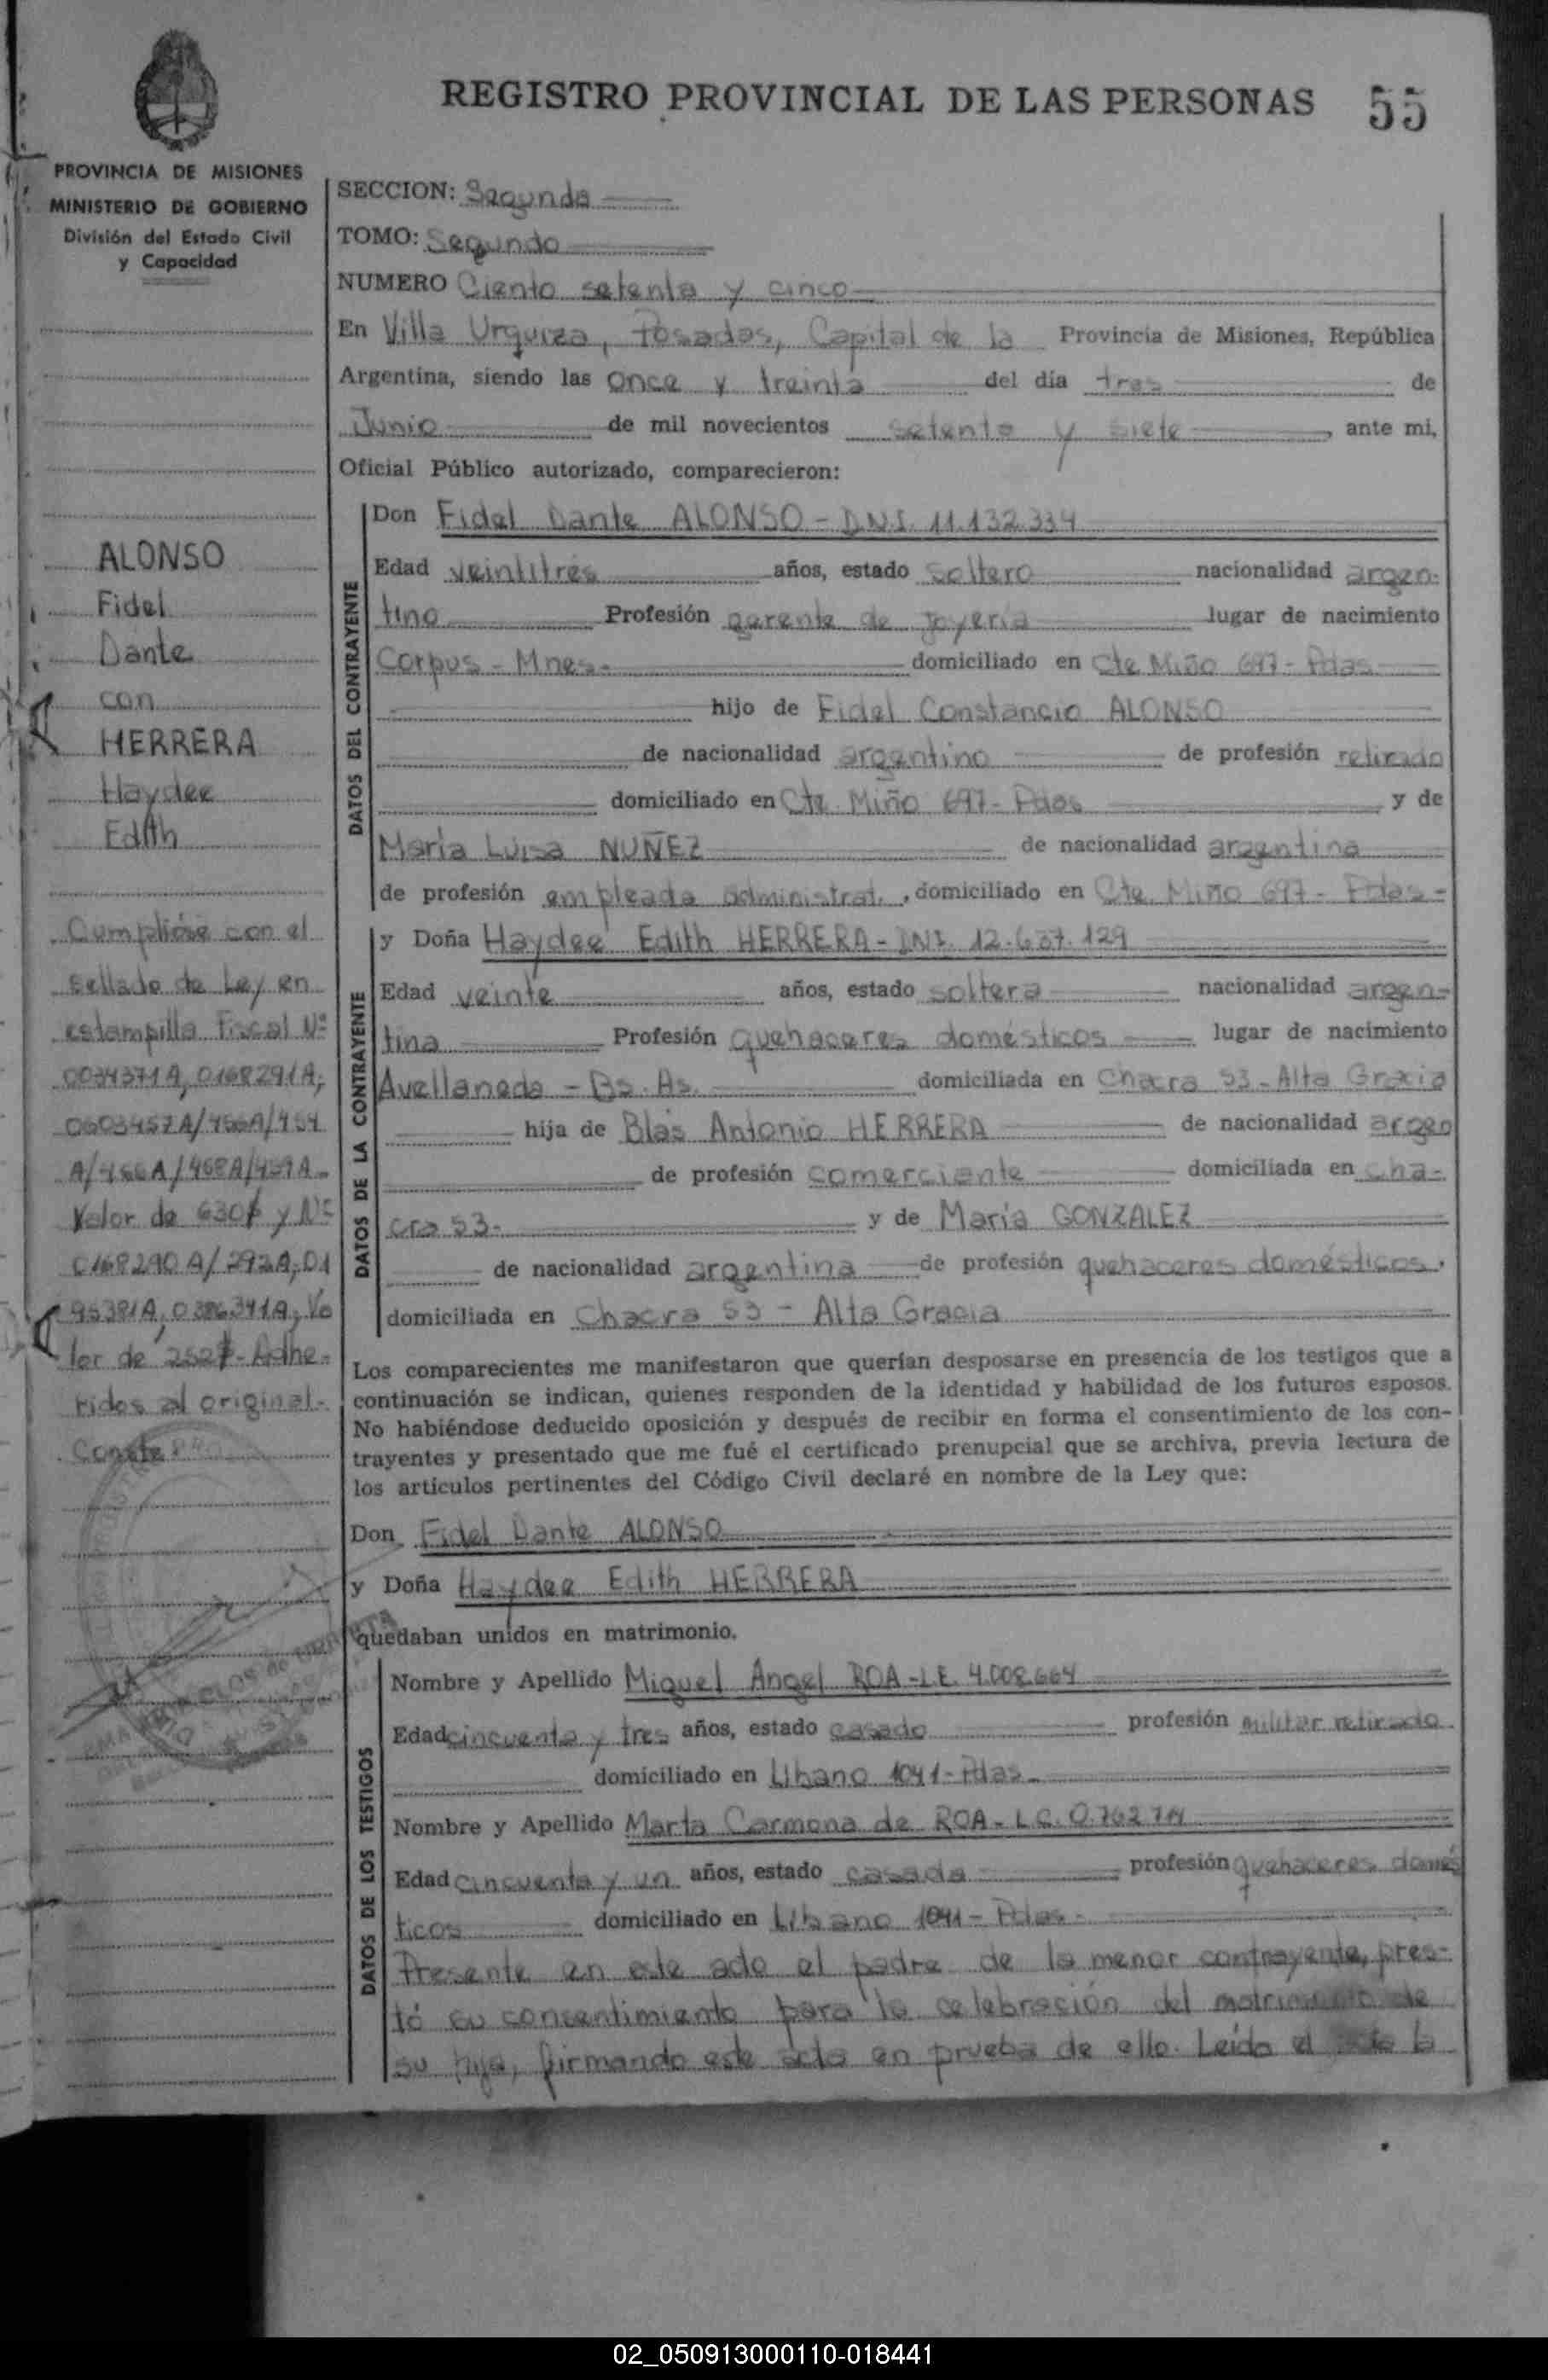 REGISTRO PROVINCIAL DE LAS PERSONAS 55
PROVINCIA DE MISIONES
MINISTERIO DE GOBIERNO
División del Estado Civil
y Capacidad
ALONSO
Fidel
Dante
con
HERRERA
Haydee
Edith
Cumplióse con el
sellado de Ley en
estampilla Fiscal Nº
0034371A, 0168291A,
A/466A/468A/459A-
Valor de 630$ y Nº
0168290A/292A, 01
95381A, 0386341A, Va
lor de 252$- Adhe-
ridos al original-
Conste
SECCION: Segunda
TOMO: Segundo
NUMERO Ciento setenta y cinco
En Villa Urquiza, Posadas, Capital de la Provincia de Misiones, República
Argentina, siendo las once y treinta del día tres de
Junio de mil novecientos setenta y siete, ante mi,
Oficial Público autorizado, comparecieron:
DATOS DEL CONTRAYENTE
Don Fidel Dante ALONSO - D.N.I. 11.132.334
Edad veintitrés años, estado soltero nacionalidad argen-
tino Profesión gerente de joyería lugar de nacimiento
Corpus - Mnes- domiciliado en Cte Miño 697 - Pdas
hijo de Fidel Constancio ALONSO
de nacionalidad argentino de profesión retirado
domiciliado en Cte. Miño 697 - Pdas y de
María Luisa NUÑEZ de nacionalidad argentina
de profesión empleada administrat., domiciliado en Cte. Miño 697 - Pdas-
DATOS DE LA CONTRAYENTE
y Doña Haydeé Edith HERRERA - DNI. 12.637.129
Edad veinte años, estado soltera nacionalidad argen-
tina Profesión quehaceres domésticos lugar de nacimiento
Avellaneda - Bs. As. domiciliada en Chacra 53 - Alta Gracia
hija de Blas Antonio HERRERA de nacionalidad argen
de profesión comerciante domiciliada en cha-
cra 53- y de María GONZALEZ
de nacionalidad argentina de profesión quehaceres domésticos,
domiciliada en Chacra 53 - Alta Gracia
Los comparecientes me manifestaron que querían desposarse en presencia de los testigos que a
continuación se indican, quienes responden de la identidad y habilidad de los futuros esposos.
No habiéndose deducido oposición y después de recibir en forma el consentimiento de los con-
trayentes y presentado que me fué el certificado prenupcial que se archiva, previa lectura de
los artículos pertinentes del Código Civil declaré en nombre de la Ley que:
Don Fidel Dante ALONSO
y Doña Haydee Edith HERRERA
quedaban unidos en matrimonio.
DATOS DE LOS TESTIGOS
Nombre y Apellido Miguel Angel ROA - L.E. 4.008.664
Edad cincuenta y tres años, estado casado profesión militar retirado
domiciliado en Líbano 1041 - Pdas-
Nombre y Apellido Marta Carmona de ROA - L.C.
Edad cincuenta y un años, estado casada profesión quehaceres domés
ticos domiciliado en Líbano 1041 - Pdas-
Presente en este acto el padre de la menor contrayente, pres-
tó su consentimiento para la celebración del matrimonio de
su hija, firmando este acta en prueba de ello. Leída el acta la
02_050913000110-018441